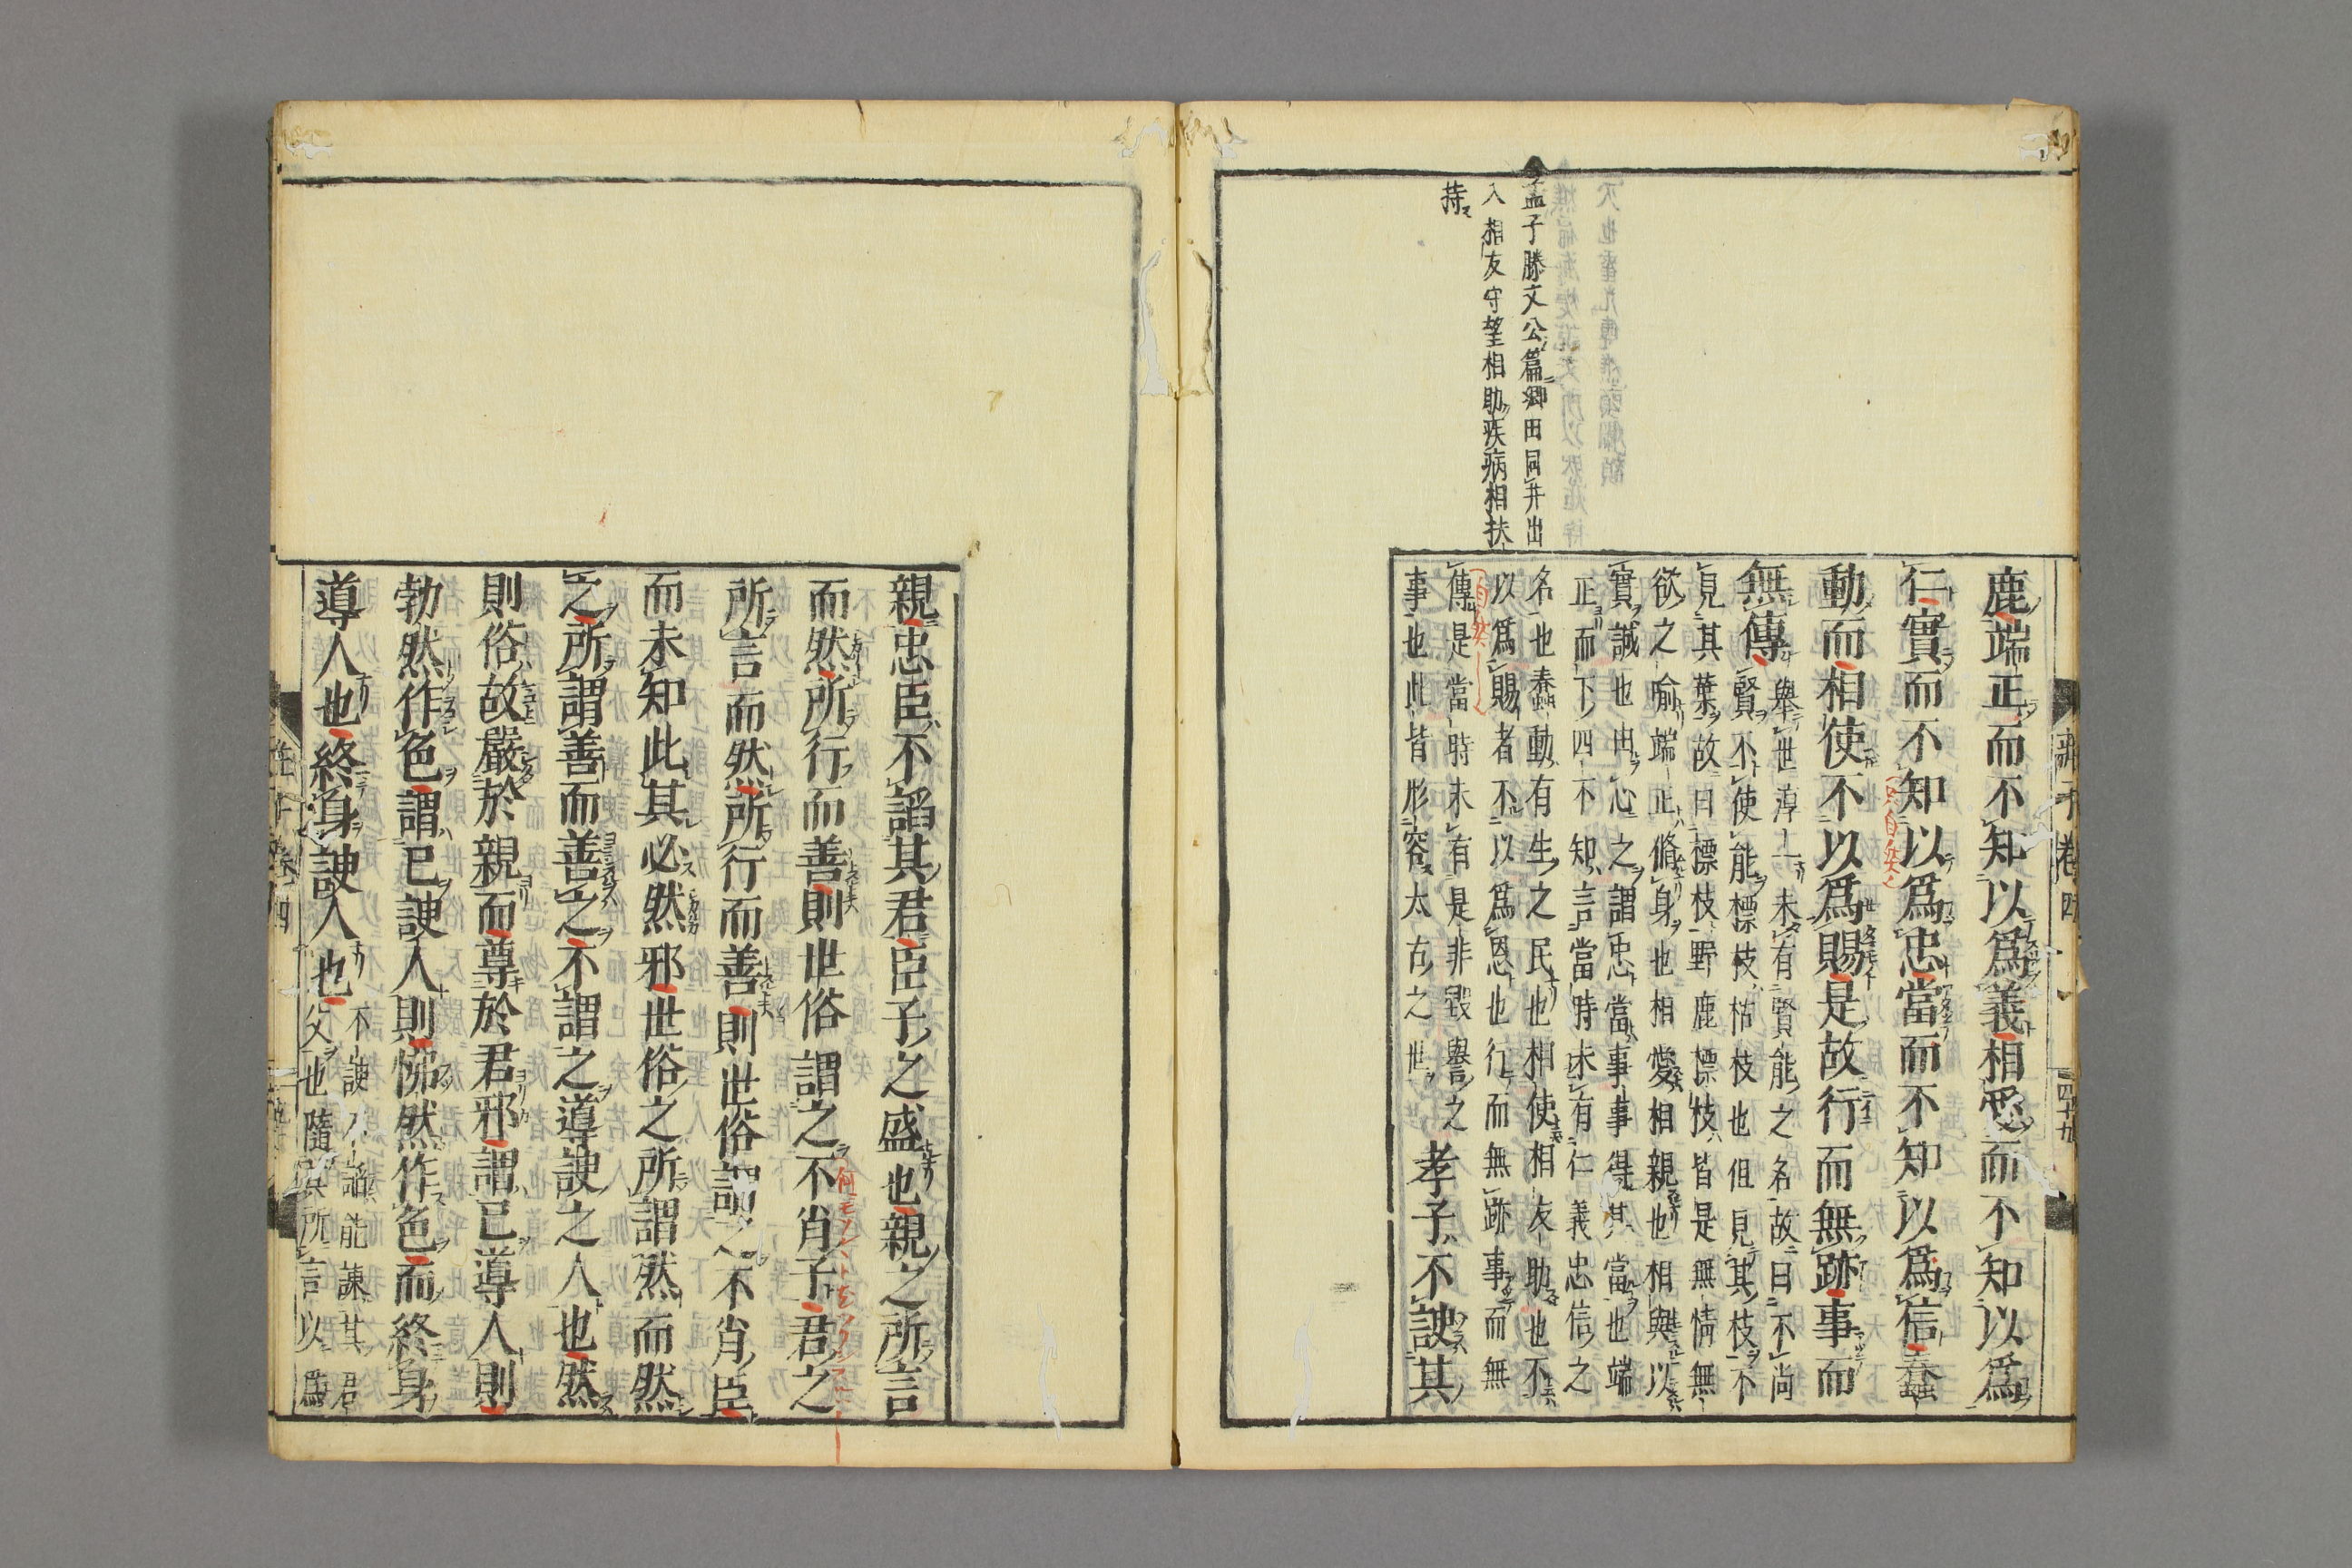 孟子滕文公篇郷田同井出
入相友守望相助疾病相扶
持
鹿端正而不知以爲義相愛而不知以爲
仁實而不知以爲忠當而不知以爲信蠢
動而相使不以爲賜是故行而無跡事而
無傳擧世淳一未有賢能之名故曰不尚
賢不使能標枝枯枝也但見其枝不
見其葉故曰標枝野鹿標枝皆是無情無
欲之喻端正脩身也相愛相親也相與以
實誠也由心之謂忠當事事得其當也端
正而下四不知言當時未有仁義忠信之
名也蠢動有生之民也相使相友助也不
以爲賜者不以爲恩也行而無跡事而無
傳是當時未有是非毀譽之
事也此皆形容太古之世孝子不諛其
卷四
四十九
親忠臣不諂其君臣子之盛也親之所言
而然所行而善則世俗謂之不肖子君之
所言而然所行而善則世俗謂之不肖臣
而未知此其必然邪世俗之所謂然而然
之所謂善而善之不謂之導諛之人也然
則俗故嚴於親而尊於君邪謂己導人則
勃然作色謂己諛人則怫然作色而終身
導人也終身諛人也不諛不諂能諫其君
父也隨其所言以爲